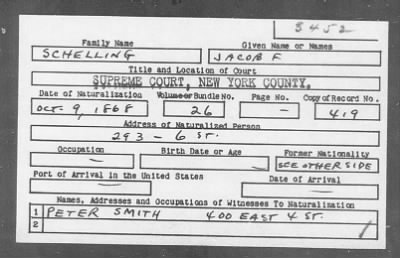 S452
Family Name Given Name or Names
SCHELLING JACOB F
Title and Location of Court
SUPREME COURT, NEW YORK COUNTY.
Date of Naturalization Volume or Bundle No. Page No. Copy of Record No.
OCT. 9, 1868 26 — 419
Address of Naturalized Person
293 - 6 ST.
Occupation Birth Date or Age Former Nationality
— — SEE OTHER SIDE
Port of Arrival in the United States Date of Arrival
— —
Names, Addresses and Occupations of Witnesses To Naturalization
1 PETER SMITH 400 EAST 4 ST.
2